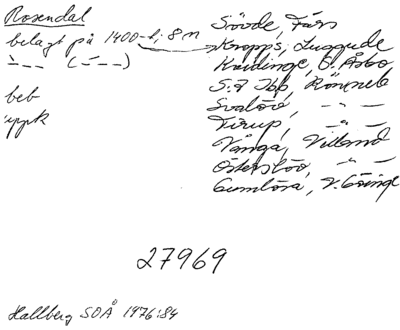 Rosendal
belagt på 1400-t: 8 n
beb
uppk
Sövde, Färs
Kropps, Luggude
Kvidinge, Ö. Åsbo
S:t Ibb, Rönneb
Svalöv, - " -
Tirup, - " -
Vånga, Villand
Österslöv, - " -
Gumlösa, V. Göinge
27969
Hallberg SOÅ 1976:84